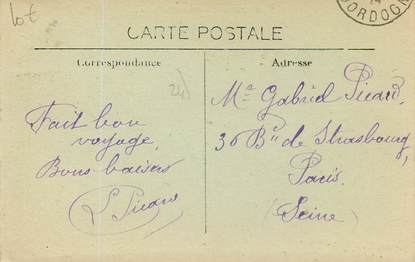 lot
DORDOGN
CARTE POSTALE
Correspondance
Adresse
24
Fait bon
voyage,
Bons baisers
L Picard
Me Gabriel Picard,
30 Bd de Strasbourg,
Paris.
(Seine)